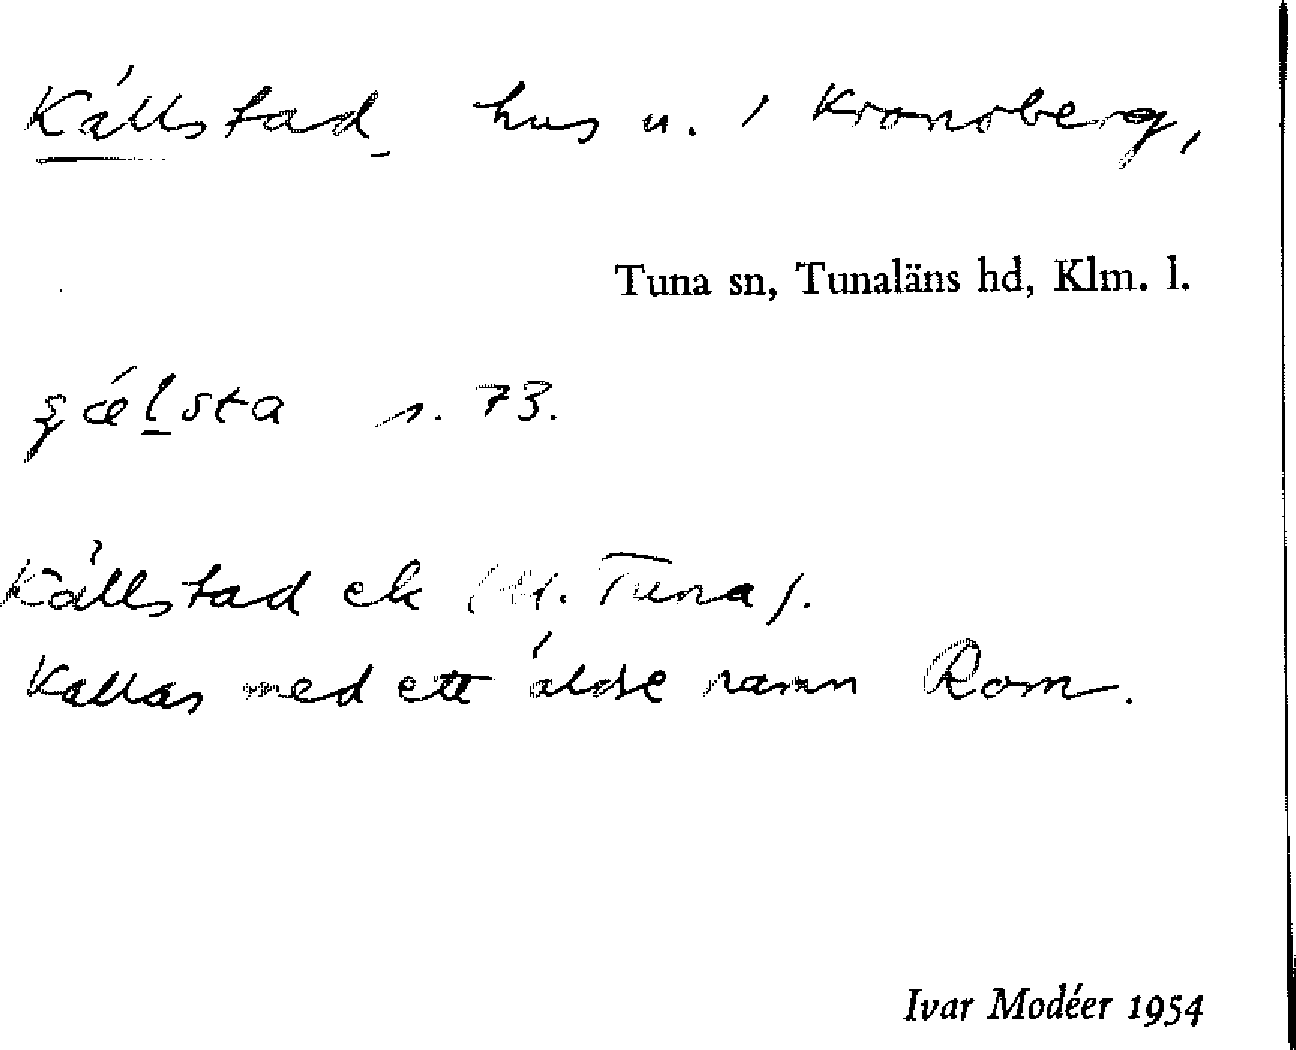 Källstad hus u. Kronoberg,
Tuna sn, Tunaläns hd, Klm. l.
s. 73.
Källstad ek (M. Tuna).
Kallas med ett äldre namn Rom.
Ivar Modéer 1954